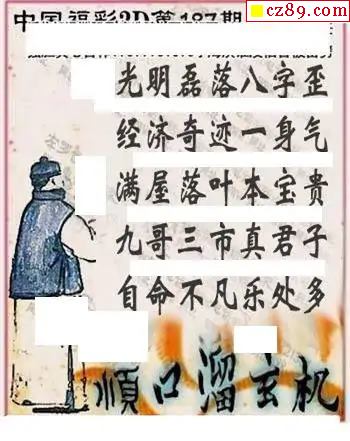 cz89.com
中国福彩3D第187期
光明磊落八字歪
经济奇迹一身气
满屋落叶本宝贵
九哥三市真君子
自命不凡乐处多
順口溜玄机